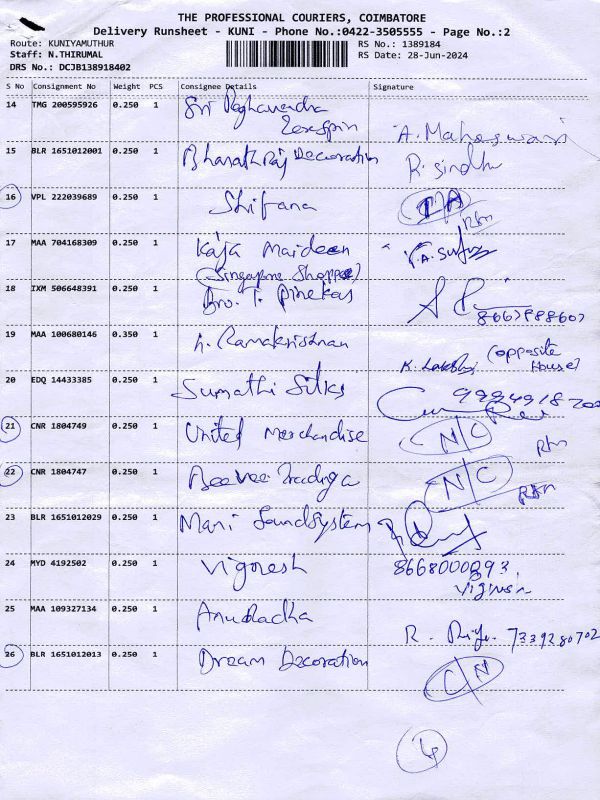 THE PROFESSIONAL COURIERS, COIMBATORE
Delivery Runsheet - KUNI - Phone No.:0422-3505555 - Page No.:2
Route: KUNIYAMUTHUR RS No.: 1389184
Staff: N.THIRUMAL RS Date: 28-Jun-2024
DRS No.: DCJB138918402
S No Consignment No Weight PCS Consignee Details Signature
14 TMG 200595926 0.250 1 Sri Raghavendra
A. Maheswari
15 BLR 1651012001 0.250 1 Bharathraj Decoration R. Sindhu
16 VPL 222039689 0.250 1 Shifana
17 MAA 704168309 0.250 1 Kaja Maideen
(Singapore Shoppee)
18 IXM 506648391 0.250 1 Bro. T. Pinekas
19 MAA 100680146 0.350 1 Ramakrishnan
(opposite
House)
20 EDQ 14433385 0.250 1 Sumathi Silks
21 CNR 1804749 0.250 1 United Merchandise N/C
22 CNR 1804747 0.250 1 N/C
23 BLR 1651012029 0.250 1 Mani Soundsystem
24 MYD 4192502 0.250 1 Vignesh 8668000893
25 MAA 109327134 0.250 1 Anuradha
R. 7339280702
26 BLR 1651012013 0.250 1 Dream Decoration C/N
4